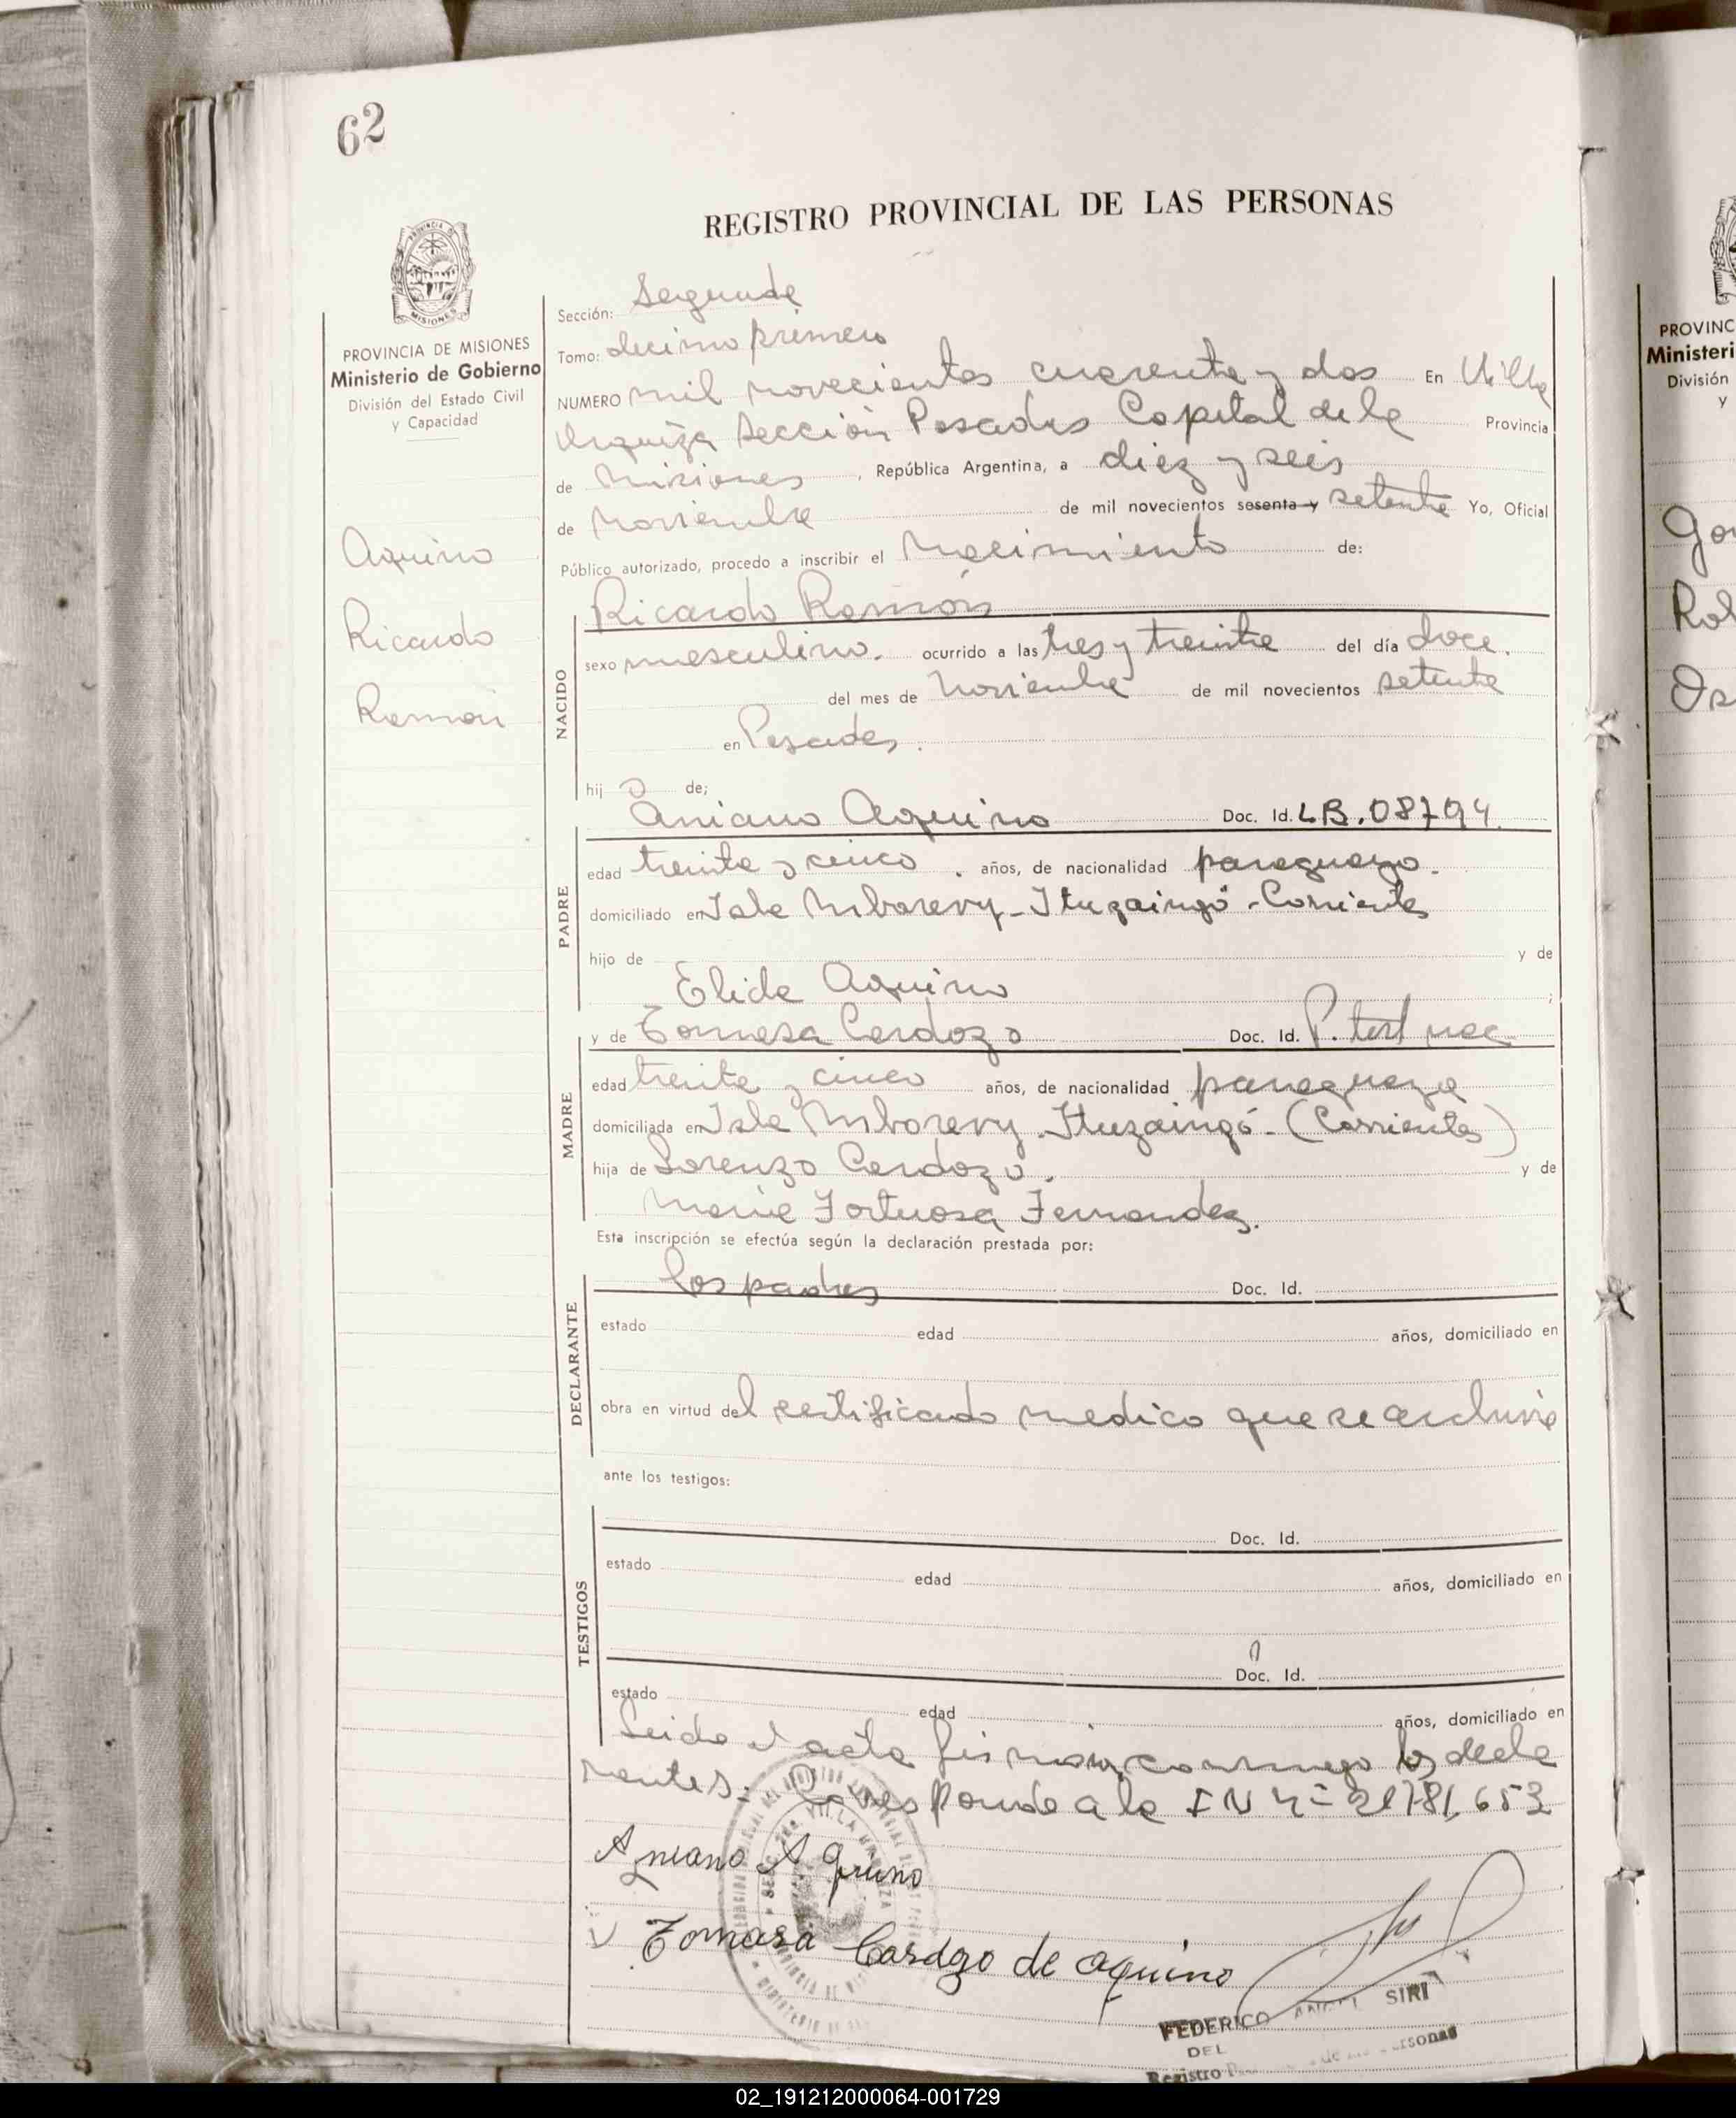 62
REGISTRO PROVINCIAL DE LAS PERSONAS
PROVINCIA DE MISIONES
Ministerio de Gobierno
División del Estado Civil
y Capacidad
Aquino
Ricardo
Ramón
Sección: Segunda
Tomo: decimo primero
NUMERO mil novecientos cuarenta y dos En Villa
Urquiza Sección Posadas Capital de la Provincia
de Misiones, República Argentina, a diez y seis
de Noviembre de mil novecientos sesenta y setenta Yo, Oficial
Público autorizado, procedo a inscribir el Nacimiento de:
Ricardo Ramón
NACIDO
sexo masculino. ocurrido a las tres y treinta del día doce.
del mes de Noviembre de mil novecientos setenta
en Posadas.
hijo de;
Aniano Aquino Doc. Id. LB. 08794.
PADRE
edad treinta y cinco. años, de nacionalidad paraguayo.
domiciliado en Isla Mborevy - Ituzaingó - Corrientes
hijo de y de
Elida Aquino ;
y de Tomasa Cardozo Doc. Id. P.
MADRE
edad treinta y cinco años, de nacionalidad paraguaya
domiciliada en Isla Mborevy - Ituzaingó - (Corrientes)
hija de Lorenzo Cardozo. y de
Maria Fortuosa Fernandez.
Esta inscripción se efectúa según la declaración prestada por:
los padres Doc. Id.
DECLARANTE
estado edad años, domiciliado en
obra en virtud del certificado medico que se archiva
ante los testigos:
Doc. Id.
TESTIGOS
estado edad años, domiciliado en
Doc. Id.
estado edad años, domiciliado en
Leida el acta firman conmigo los decla
rantes. Corresponde a la I N Nº 21781,653
Aniano Aquino
Tomasa Cardozo de aquino
FEDERICO ANGEL SIRI
DEL
Registro Personas
PROVINC
Ministeri
División
y
02_191212000064-001729